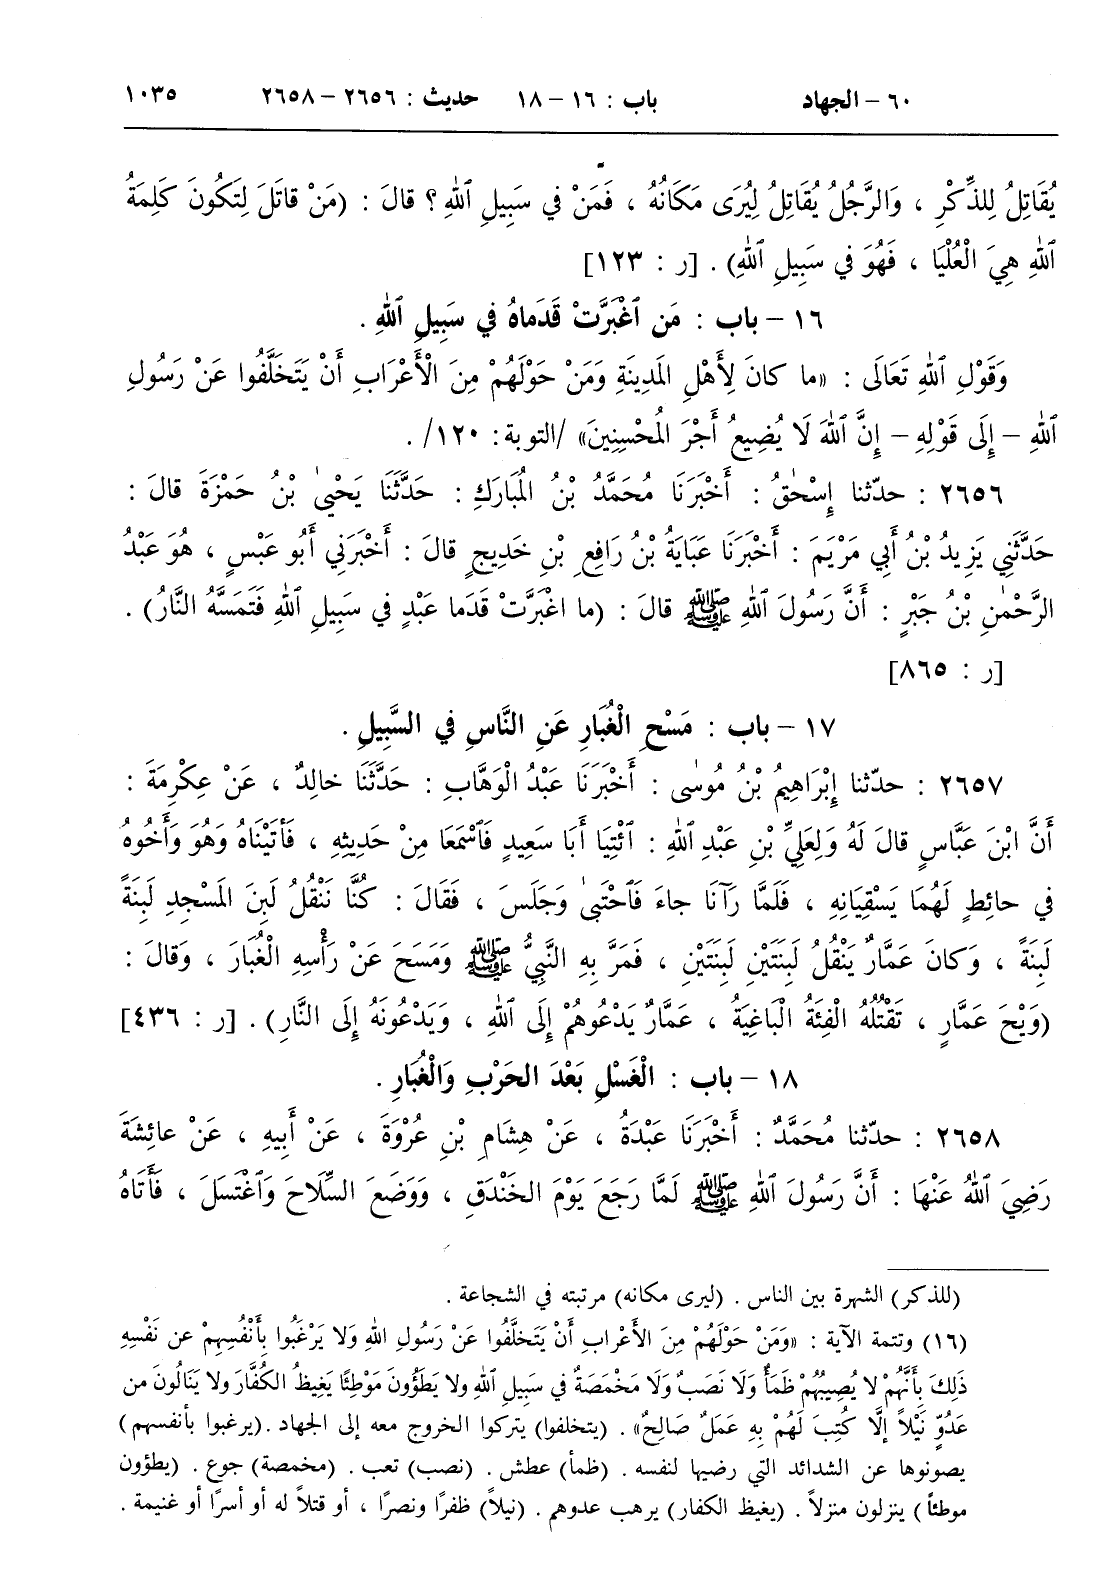 ٦٠ – الجهاد باب : ١٦ – ١٨ حديث : ٢٦٥٦ – ٢٦٥٨ ١٠٣٥
يُقَاتِلُ لِلذِّكْرِ ، وَالرَّجُلُ يُقَاتِلُ لِيُرَى مَكَانُهُ ، فَمَنْ في سَبِيلِ ٱللهِ ؟ قالَ : (مَنْ قاتَلَ لِتَكُونَ كَلِمَةُ
ٱللهِ هِيَ الْعُلْيَا ، فَهُوَ في سَبِيلِ ٱللهِ) . [ر : ١٢٣]
١٦ – باب : مَن ٱغْبَرَّتْ قَدَماهُ في سَبِيلِ ٱللهِ .
وَقَوْلِ ٱللهِ تَعَالَى : «ما كانَ لِأَهْلِ المَدِينَةِ وَمَنْ حَوْلَهُمْ مِنَ الْأَعْرَابِ أَنْ يَتَخَلَّفُوا عَنْ رَسُولِ
ٱللهِ – إِلَى قَوْلِهِ – إِنَّ ٱللهَ لَا يُضِيعُ أَجْرَ المُحْسِنِينَ» /التوبة: ١٢٠/ .
٢٦٥٦ : حدّثنا إِسْحٰقُ : أَخْبَرَنَا مُحَمَّدُ بْنُ المُبَارَكِ : حَدَّثَنَا يَحْيىٰ بْنُ حَمْزَةَ قالَ :
حَدَّثَنِي يَزِيدُ بْنُ أَبِي مَرْيَمَ : أَخْبَرَنَا عَبَايَةُ بْنُ رَافِعِ بْنِ خَدِيجٍ قالَ : أَخْبَرَنِي أَبُو عَبْسٍ ، هُوَ عَبْدُ
الرَّحْمٰنِ بْنُ جَبْرٍ : أَنَّ رَسُولَ ٱللهِ ﷺ قالَ : (ما اغْبَرَّتْ قَدَما عَبْدٍ في سَبِيلِ ٱللهِ فَتَمَسَّهُ النَّارُ) .
[ر : ٨٦٥]
١٧ – باب : مَسْحِ الْغُبَارِ عَنِ النَّاسِ في السَّبِيلِ .
٢٦٥٧ : حدّثنا إِبْرَاهِيمُ بْنُ مُوسٰى : أَخْبَرَنَا عَبْدُ الْوَهَّابِ : حَدَّثَنَا خالِدٌ ، عَنْ عِكْرِمَةَ :
أَنَّ ابْنَ عَبَّاسٍ قالَ لَهُ وَلِعَلِيِّ بْنِ عَبْدِ ٱللهِ : ٱئْتِيَا أَبَا سَعِيدٍ فَٱسْمَعَا مِنْ حَدِيثِهِ ، فَأَتَيْنَاهُ وَهُوَ وَأَخُوهُ
في حائِطٍ لَهُمَا يَسْقِيَانِهِ ، فَلَمَّا رَآنَا جاءَ فَٱحْتَبىٰ وَجَلَسَ ، فَقَالَ : كُنَّا نَنْقُلُ لَبِنَ المَسْجِدِ لَبِنَةً
لَبِنَةً ، وَكانَ عَمَّارٌ يَنْقُلُ لَبِنَتَيْنِ لَبِنَتَيْنِ ، فَمَرَّ بِهِ النَّبِيُّ ﷺ وَمَسَحَ عَنْ رَأْسِهِ الْغُبَارَ ، وَقالَ :
(وَيْحَ عَمَّارٍ ، تَقْتُلُهُ الْفِئَةُ الْبَاغِيَةُ ، عَمَّارٌ يَدْعُوهُمْ إِلَى ٱللهِ ، وَيَدْعُونَهُ إِلَى النَّارِ) . [ر : ٤٣٦]
١٨ – باب : الْغَسْلِ بَعْدَ الحَرْبِ وَالْغُبَارِ .
٢٦٥٨ : حدّثنا مُحَمَّدٌ : أَخْبَرَنَا عَبْدَةُ ، عَنْ هِشَامِ بْنِ عُرْوَةَ ، عَنْ أَبِيهِ ، عَنْ عائِشَةَ
رَضِيَ ٱللهُ عَنْهَا : أَنَّ رَسُولَ ٱللهِ ﷺ لَمَّا رَجَعَ يَوْمَ الخَنْدَقِ ، وَوَضَعَ السِّلَاحَ وَٱغْتَسَلَ ، فَأَتَاهُ
(للذكر) الشهرة بين الناس . (ليرى مكانه) مرتبته في الشجاعة .
(١٦) وتتمة الآية : «وَمَنْ حَوْلَهُمْ مِنَ الأَعْرَابِ أَنْ يَتَخَلَّفُوا عَنْ رَسُولِ اللهِ وَلا يَرْغَبُوا بِأَنْفُسِهِمْ عن نَفْسِهِ
ذَلِكَ بِأَنَّهُمْ لا يُصِيبُهُمْ ظَمَأٌ وَلَا نَصَبٌ وَلَا مَخْمَصَةٌ في سَبِيلِ اللهِ ولا يَطَؤُونَ مَوْطِئًا يَغِيظُ الكُفَّارَ ولا يَنَالُونَ من
عَدُوٍّ نَيْلاً إلَّا كُتِبَ لَهُمْ بِهِ عَمَلٌ صَالِحٌ» . (يتخلفوا) يتركوا الخروج معه إلى الجهاد .(يرغبوا بأنفسهم)
يصونوها عن الشدائد التي رضيها لنفسه . (ظمأ) عطش . (نصب) تعب . (مخمصة) جوع . (يطؤون
موطئاً) ينزلون منزلاً . (يغيظ الكفار) يرهب عدوهم . (نيلاً) ظفرًا ونصرًا ، أو قتلاً له أو أسرًا أو غنيمة .